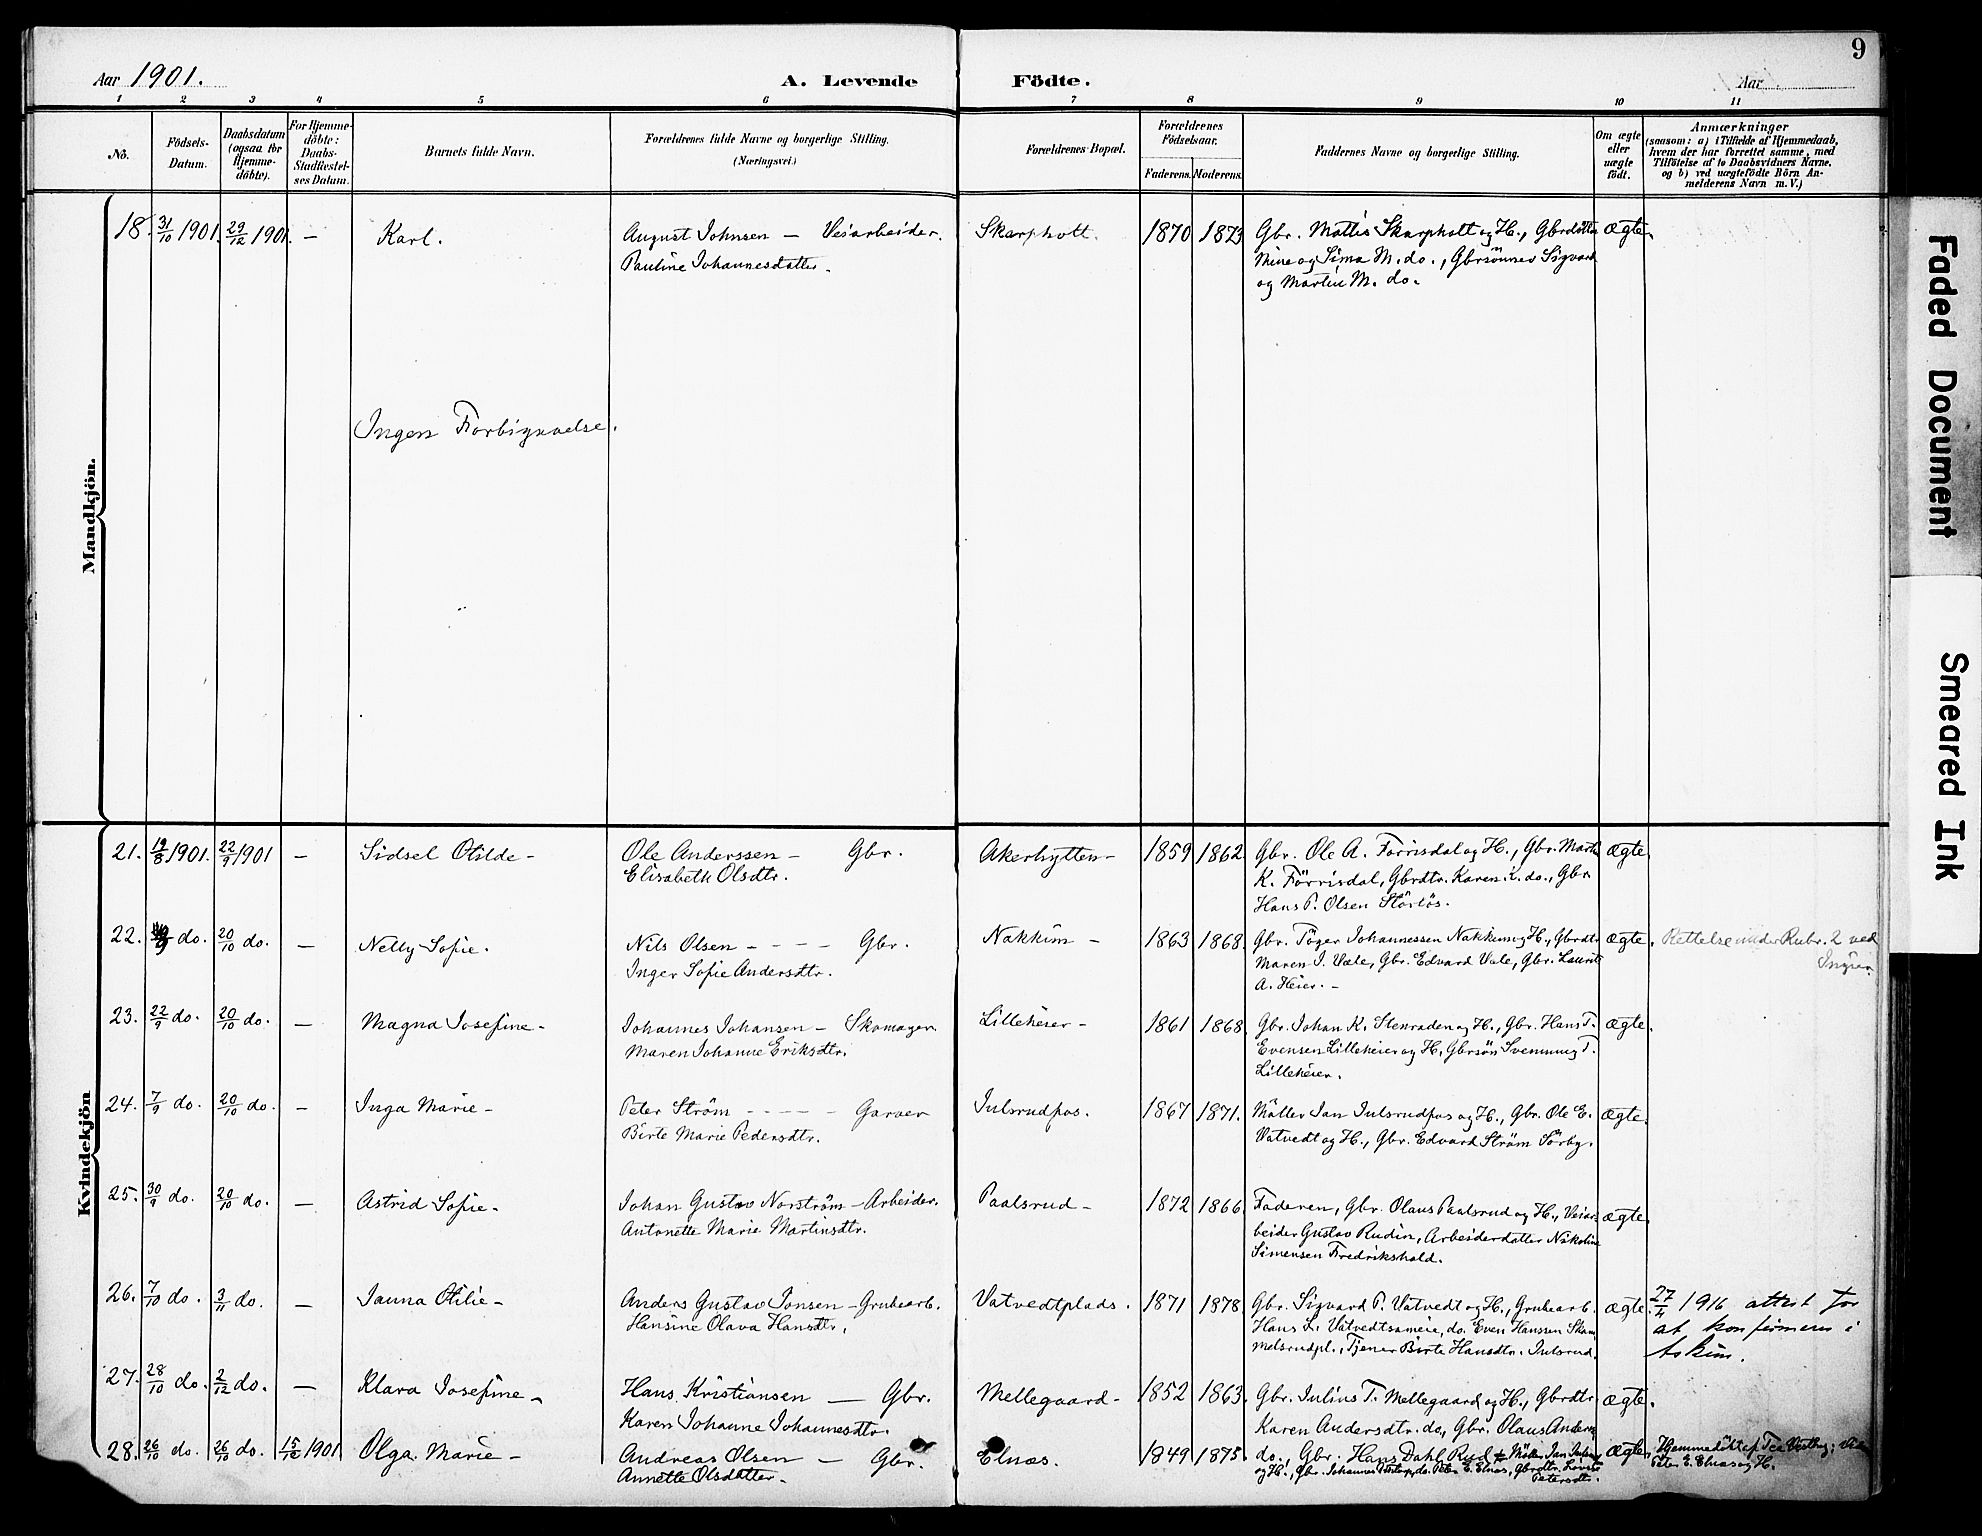 9
Aar 1901. A. Levende Födte. Aar
1 2 3 4 5 6 7 8 9 10 11
No. Födsels-Datum. Daabsdatum (ogsaa for Hjemme-döbte). For Hjemme-döbte: Daabs-Stadfæstel-ses Datum. Barnets fulde Navn. Forældrenes fulde Navne og borgerlige Stilling. (Næringsvei.) Forældrenes Bopæl. Forældrenes Födselsaar. Faderens. Moderens. Faddernes Navne og borgerlige Stilling. Om ægte eller uægte födt. Anmærkninger (saasom: a) i Tilfælde af Hjemmedaab, hvem der har forrettet samme, med Tilföielse af to Daabsvidners Navne, og b) ved uægtefödte Börn An-melderens Navn m. V.)
Mandkjön.
18. 31/10 1901. 29/12 1901. — Karl. August Johnsen — Veiarbeider. Skarpholt. 1870 1873 Gbr. Mattis Skarpholt og H., Gbrdøttre ægte.
Pauline Johannesdatter. Mina og Sima M. do., Gbrsönner Sigvart
og Martin M. do.
Ingen Forbigaaelse.
Kvindekjön
21. 19/8 1901. 22/9 1901 — Sidsel Otilde — Ole Anderssen — Gbr. Akerhytten — 1859 1862 Gbr. Ole A. Forrisdal og H., Gbr. Martin ægte.
Elisabeth Olsdtr. K. Förrisdal, Gbrdtr. Karen K. do., Gbr.
Hans P. Olsen Störtös.
22. 9 do. 20/10 do. — Nelly Sofie. Nils Olsen - - - - Gbr. Nakkim — 1863 1868. Gbr. Töger Johannessen Nakkim og H., Gbrdtr. ægte. Rettelse under Rubr. 2 ved
Inger Sofie Andersdtr. Maren J. Vale, Gbr. Edvard Vale, Gbr. Laurits
A. Heier. —
23. 22/9 do. 20/10 do. — Magna Josefine — Johannes Johansen — Skomager. Lilleheier — 1861 1868. Gbr. Johan K. Stenraden og H., Gbr. Hans T. ægte.
Maren Johanne Eriksdtr. Evensen Lilleheier og H, Gbrsön Svenning T.
Lilleheier.
24. 7/9 do. 20/10 do. — Inga Marie — Peter Ström - - - - - Garver Julsrudfos. 1867 1871. Möller Jan Julsrudfos og H., Gbr. Ole E. ægte.
Birte Marie Pedersdtr. Vatvedt og H., Gbr. Edvard Ström Sörby.
25. 30/9 do. 20/10 do. — Astrid Sofie — Johan Gustav Norström — Arbeider. Paalsrud — 1872 1866. Faderen, Gbr. Olaus Paalsrud og H., Veiar- ægte.
Antonette Marie Martinsdtr. beider Gustav Rudin, Arbeiderdatter Nikoline
Simensen Fredrikshald.
26. 7/10 do. 3/11 do. — Janna Otilie — Anders Gustav Jonsen — Grubearb. Vatvedtplads. 1871 1878. Gbr. Sigvard P. Vatvedt og H., Grubearb. ægte. 27/4 1916 attest for
Hansine Olava Hansdtr. Hans L. Vatvedtsameie, do. Even Hanssen Skam- at konfirmeres i
melsrudpl., Tjener Birte Hansdtr. Julsrud. Askim.
27. 28/10 do. 2/12 do. — Klara Josefine — Hans Kristiansen — Gbr. Mellegaard — 1852 1863. Gbr. Julius T. Mellegaard og H., Gbrdtr. ægte.
Karen Johanne Johannesdtr. Karen Andersdtr. do, Gbr. Olaus Anders
28. 26/10 do. 26/10 do. 15/12 1901. Olga Marie — Andreas Olsen — Gbr. Elnæs. 1849 1875. do., Gbr. Hans Dahl Rud Möller Jan ægte. Hjemmedöbt af
Annette Olsdatter. og H., Gbr. Johannes do. Peter E. Elnæs, Gbrdtr. Peter E. Elnæs og H.
Petersdtr.
Faded Document
Smeared Ink